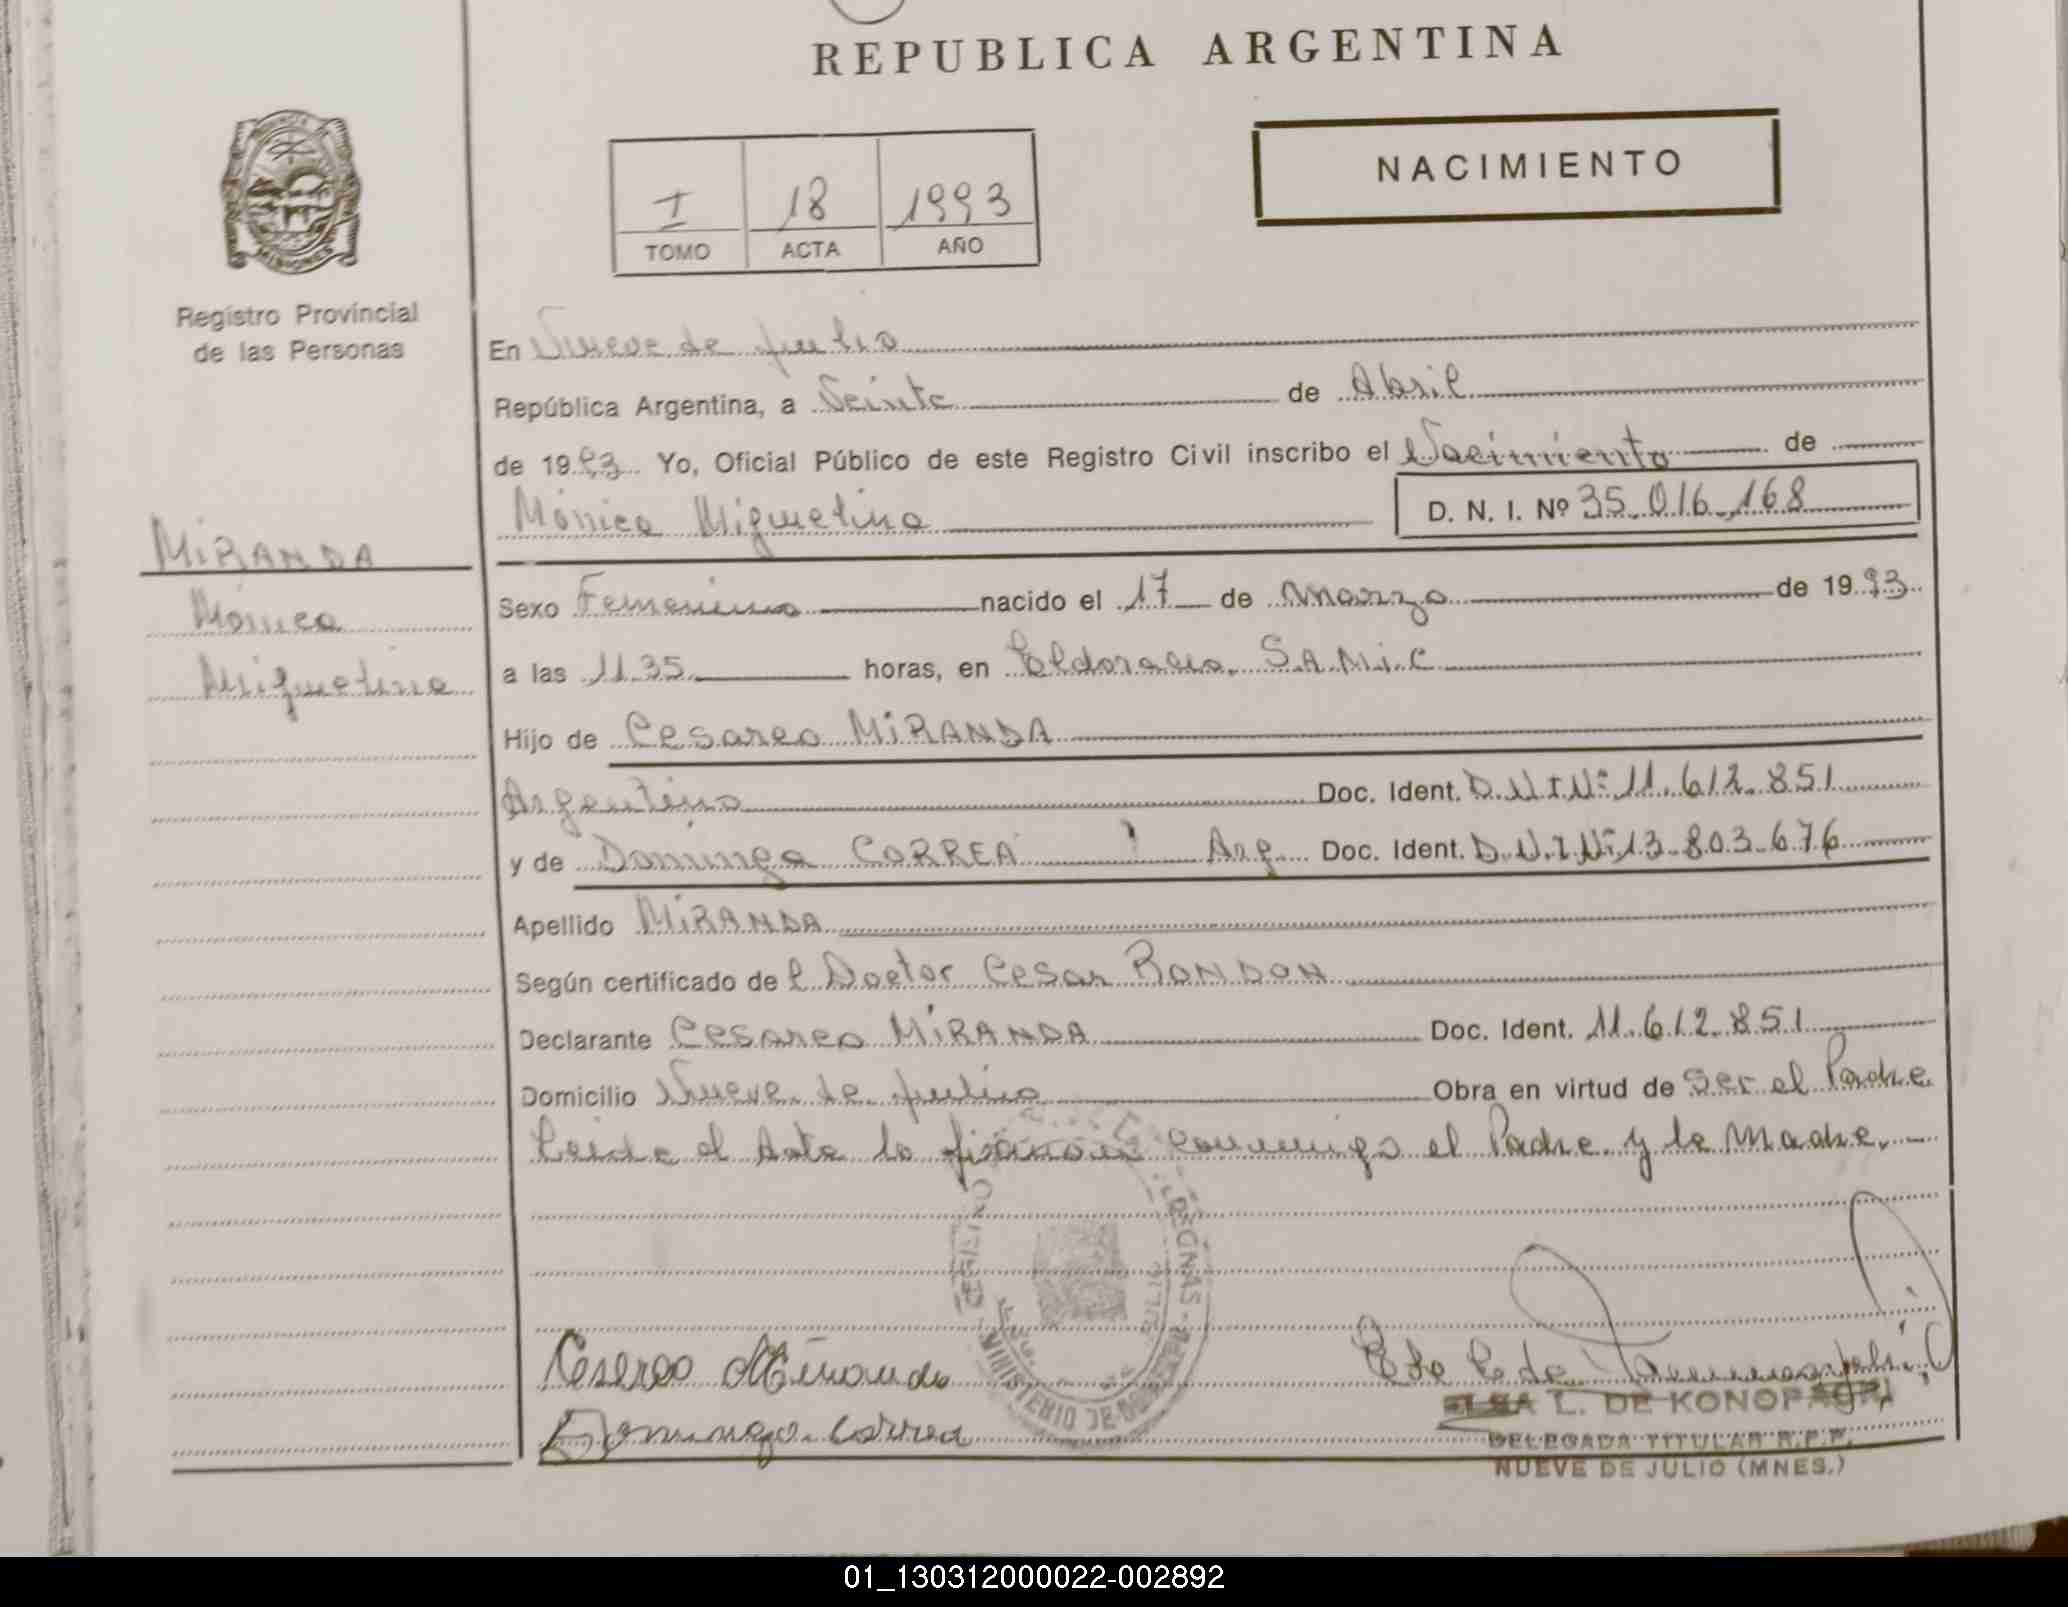 REPUBLICA ARGENTINA
NACIMIENTO
I 18 1993
TOMO ACTA AÑO
MISIONES
Registro Provincial
de las Personas
En Nueve de Julio
República Argentina, a Veinte de Abril
de 1993 Yo, Oficial Público de este Registro Civil inscribo el Nacimiento de
Mónica Miguelina D. N. I. Nº 35.016.168
MiRANDA
Mónica
Miguelina
Sexo Femenino nacido el 17 de Marzo de 1993
a las 11.35 horas, en Eldorado. S.A.M.i.C
Hijo de Cesareo MiRANDA
Argentino Doc. Ident. D.N.I.Nº 11.612.851
y de Dominga CORREA Arg. Doc. Ident. D.N.I.Nº 13.803.676
Apellido MiRANDA
Según certificado del Doctor Cesar RONDON
Declarante Cesareo MiRANDA Doc. Ident. 11.612.851
Domicilio Nueve de Julio Obra en virtud de Ser el Padre
Leida el Acta la firman conmigo el Padre y la Madre.
MINISTERIO DE
Cesareo Miranda
Dominga Correa
ELSA L. DE KONOPASKI
DELEGADA TITULAR R.P.P.
NUEVE DE JULIO (MNES.)
01_130312000022-002892